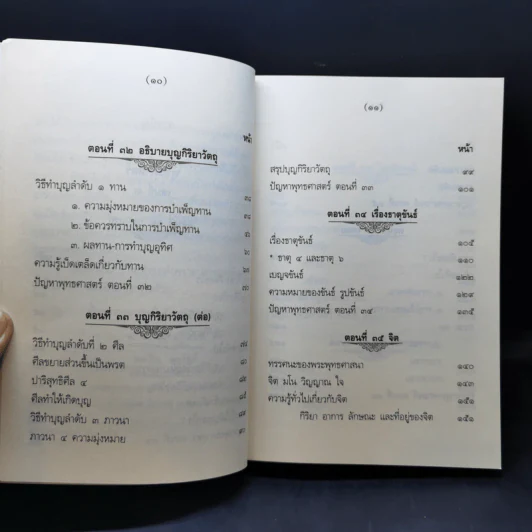 (๑๐)
หน้า
ตอนที่ ๓๒ อธิบายบุญกิริยาวัตถุ
วิธีทำบุญลำดับ ๑ ทาน
๑. ความมุ่งหมายของการบำเพ็ญทาน
๒. ข้อควรทราบในการบำเพ็ญทาน
๓. ผลทาน-การทำบุญอุทิศ
ความรู้เบ็ดเตล็ดเกี่ยวกับทาน
ปัญหาพุทธศาสตร์ ตอนที่ ๓๒
ตอนที่ ๓๓ บุญกิริยาวัตถุ (ต่อ)
วิธีทำบุญลำดับที่ ๒ ศีล
ศีลขยายส่วนขึ้นเป็นพรต
ปาริสุทธิศีล ๔
ศีลทำให้เกิดบุญ
วิธีทำบุญลำดับ ๓ ภาวนา
ภาวนา ๔ ความมุ่งหมาย
(๑๑)
หน้า
สรุปบุญกิริยาวัตถุ ๙๙
ปัญหาพุทธศาสตร์ ตอนที่ ๓๓ ๑๐๑
ตอนที่ ๓๔ เรื่องธาตุขันธ์
เรื่องธาตุขันธ์ ๑๐๕
* ธาตุ ๔ และธาตุ ๖ ๑๑๐
เบญจขันธ์ ๑๒๒
ความหมายของขันธ์ รูปขันธ์ ๑๒๙
ปัญหาพุทธศาสตร์ ตอนที่ ๓๔ ๑๓๕
ตอนที่ ๓๕ จิต
ทรรศนะของพระพุทธศาสนา ๑๔๐
จิต มโน วิญญาณ ใจ ๑๔๓
ความรู้ทั่วไปเกี่ยวกับจิต ๑๕๑
กิริยา อาการ ลักษณะ และที่อยู่ของจิต ๑๕๑